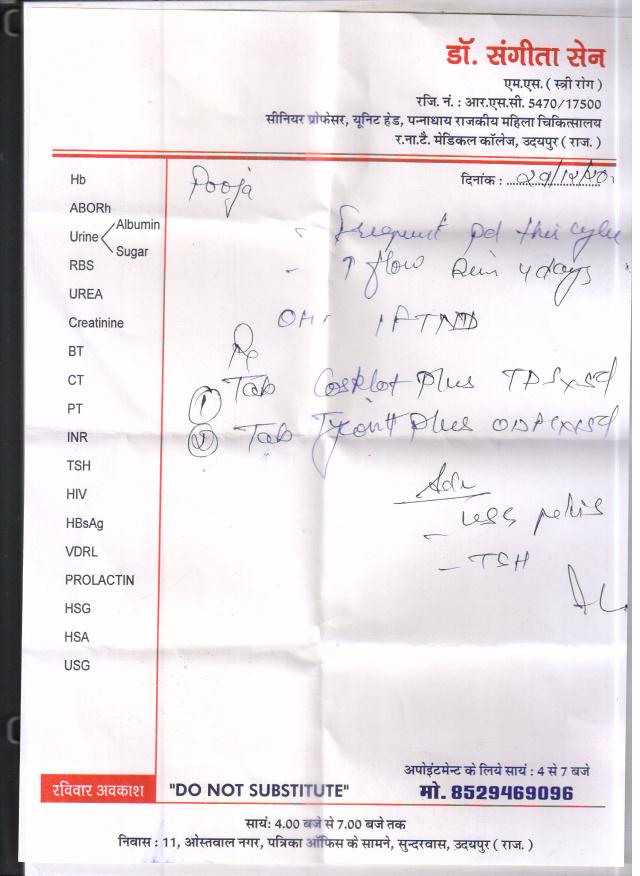 डॉ. संगीता सेन
एम.एस. ( स्त्री रोग )
रजि. नं. : आर.एस.सी. 5470/17500
सीनियर प्रोफेसर, यूनिट हेड, पन्नाधाय राजकीय महिला चिकित्सालय
र.ना.टै. मेडिकल कॉलेज, उदयपुर ( राज. )
दिनांक :
Pooja
Hb
ABORh
Urine Albumin
Sugar
RBS
UREA
Creatinine
BT
CT
PT
INR
TSH
HIV
HBsAg
VDRL
PROLACTIN
HSG
HSA
USG
- Frequent pd this cycle
- ↑ flow 4 days
Rx
① Tab Plus TDS x 5d
② Tab Plus
Adv
- USS pelvis
- TSH
रविवार अवकाश
"DO NOT SUBSTITUTE"
अपोइंटमेन्ट के लिये सायं : 4 से 7 बजे
मो. 8529469096
सायं: 4.00 बजे से 7.00 बजे तक
निवास : 11, ओस्तवाल नगर, पत्रिका ऑफिस के सामने, सुन्दरवास, उदयपुर ( राज. )